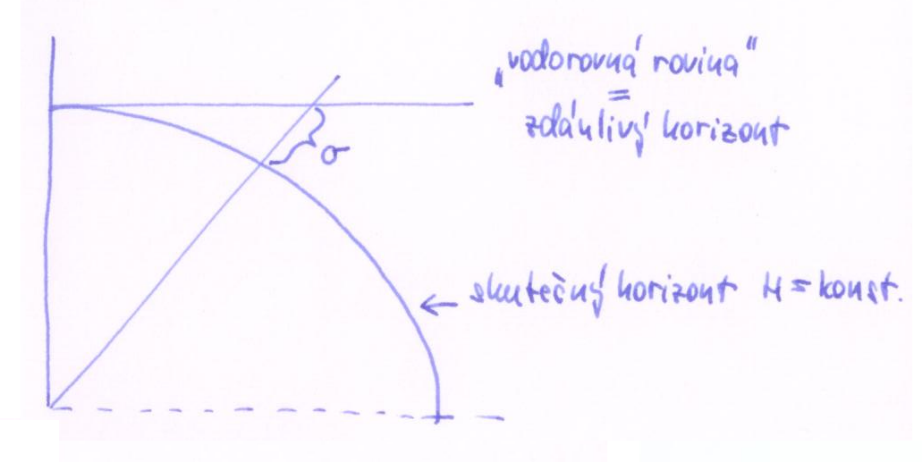 „vodorovná rovina“
=
zdánlivý horizont
σ
← skutečný horizont H = konst.